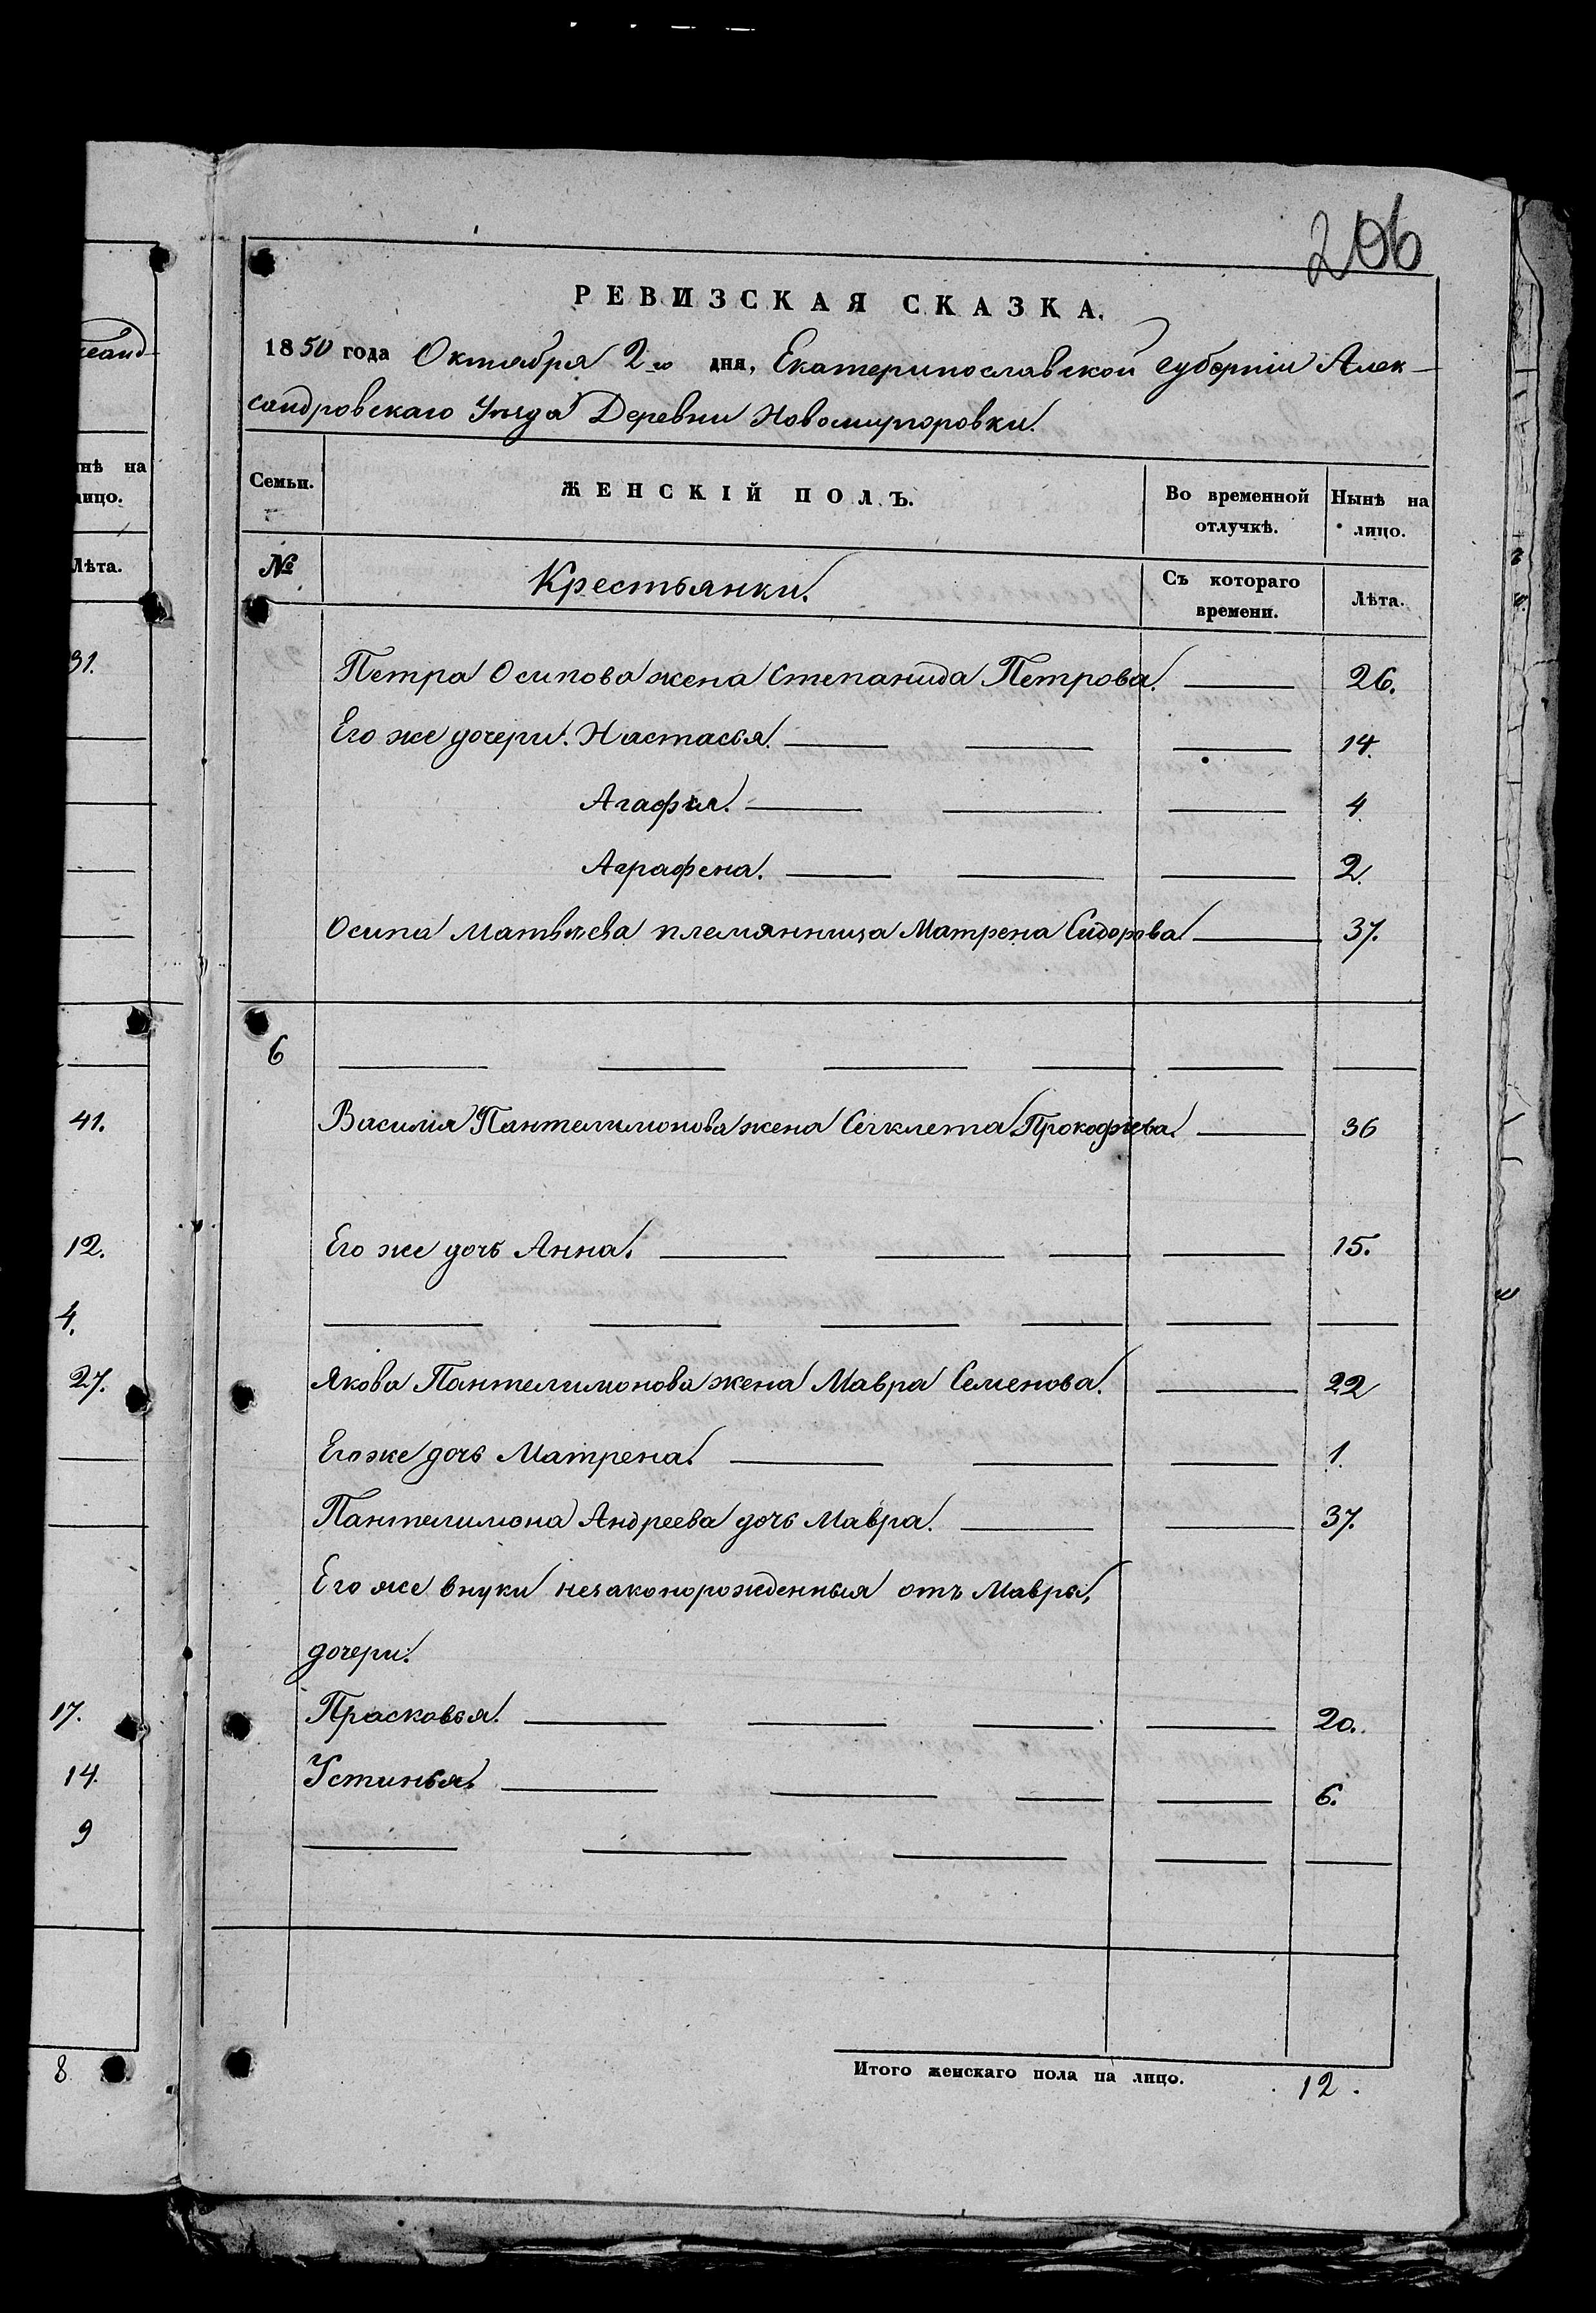 206
РЕВИЗСКАЯ СКАЗКА.
1850 года Октября 2го дня, Екатеринославской губерніи Алек-
сандровскаго Уѣзда Деревни Новомиргоровки.
Семьи.
ЖЕНСКІЙ ПОЛЪ.
Во временной отлучкѣ.
Нынѣ на лицо.
№
Крестьянки.
Съ котораго времени.
Лѣта.
Петра Осипова жена Степанида Петрова. 26.
Его же дочери. Настасья. 14.
Агафья. 4
Аграфена. 2.
Осипа Матвѣева племянница Матрена Сидорова 37.
6
Василія Пантелимонова жена Секлета Прокофьева. 36
Его же дочь Анна. 15.
Якова Пантелимонова жена Мавра Семенова. 22
Его же дочь Матрена. 1.
Пантелимона Андреева дочь Мавра. 37.
Его же внуки незаконорожденныя отъ Мавры,
дочери:
Прасковья. 20.
Устинья. 6.
Итого женскаго пола на лицо. 12.
нѣ на
лицо.
Лѣта.
31.
41.
12.
4.
27.
17.
14.
9
8